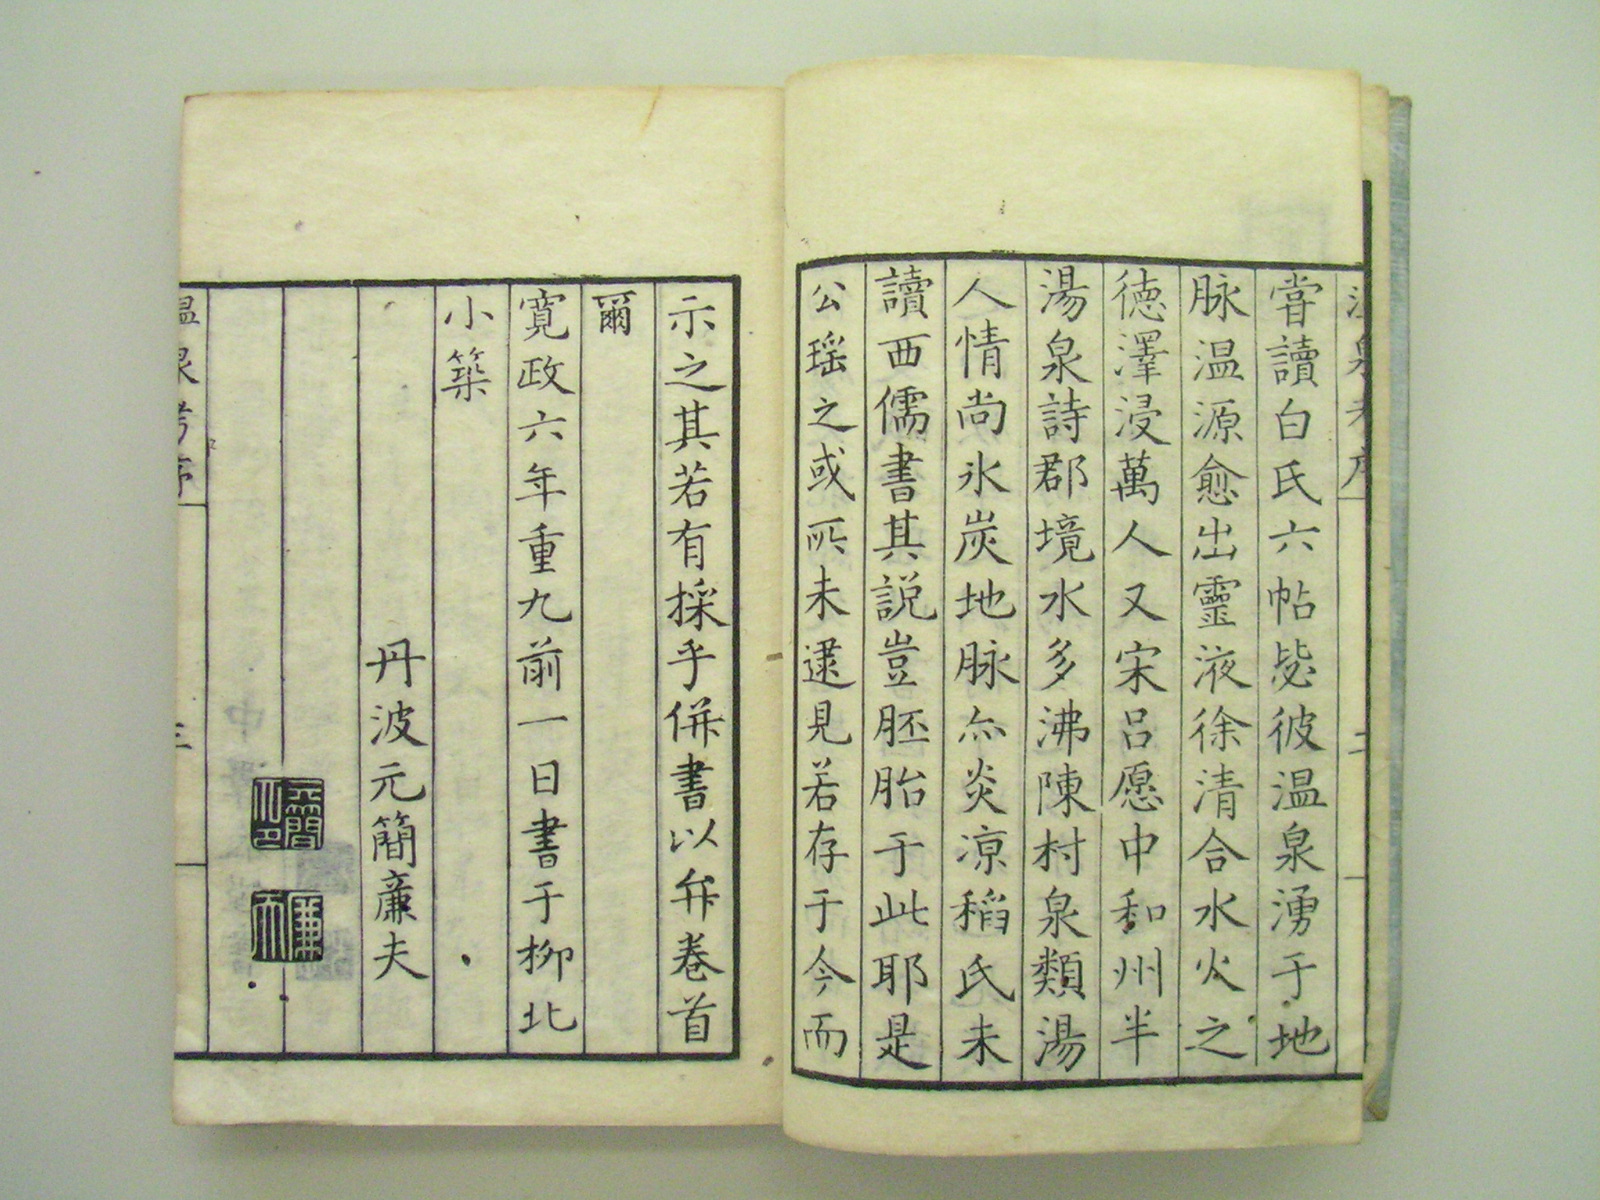 嘗讀白氏六帖毖彼温泉湧于地
脉温源愈出靈液徐清合水火之
徳澤浸萬人又宋呂愿中和州半
湯泉詩郡境水多沸陳村泉類湯
人情尚氷炭地脉亦炎凉稻氏未
讀西儒書其説豈胚胎于此耶是
公瑶之或所未逮見若存于今而
示之其若有採乎併書以弁巻首
爾
寛政六年重九前一日書于柳北
小築
丹波元簡廉夫
元簡之印
廉夫
温泉考序
三